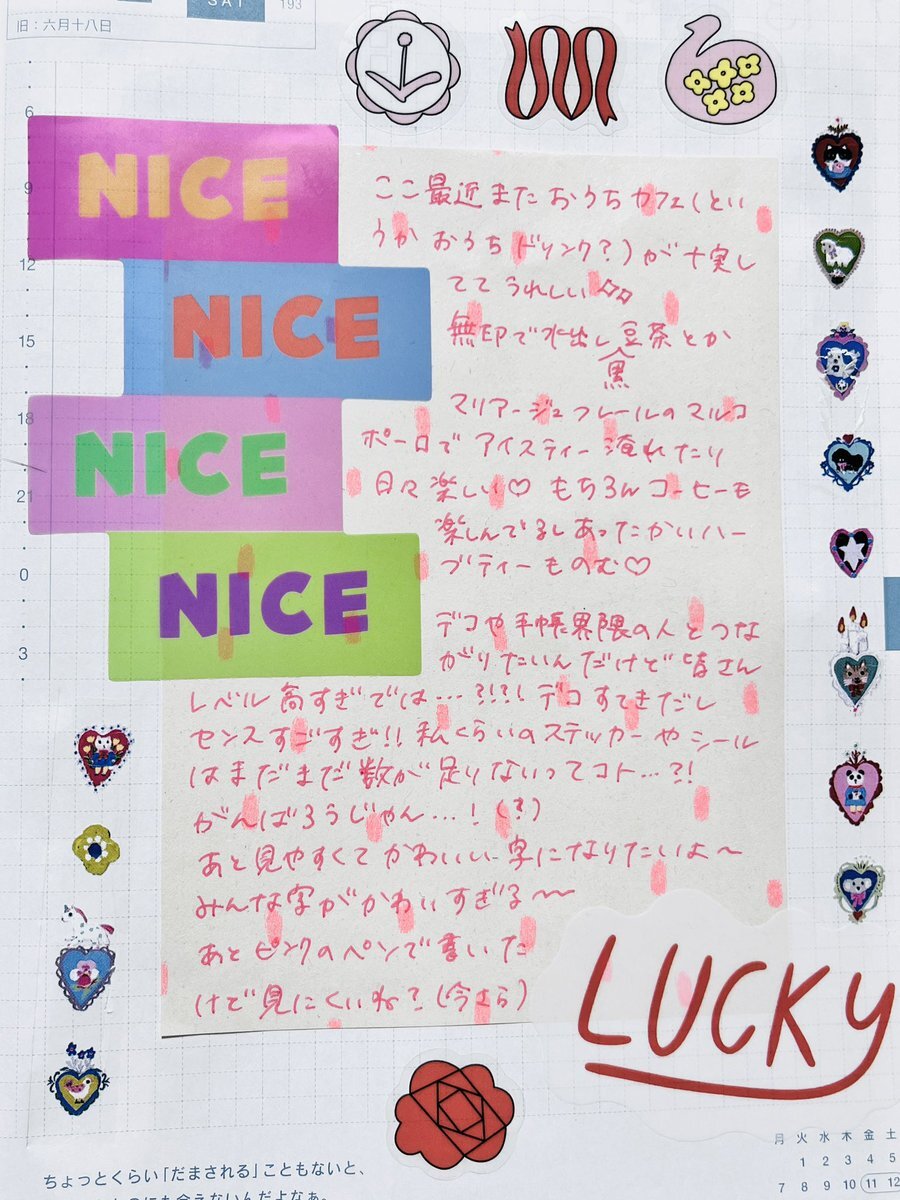 SAT
193
旧：六月十八日
6
9
12
15
18
21
0
3
NICE
NICE
NICE
NICE
ここ最近またおうちカフェ(とい
うかおうちドリンク?)が充実し
ててうれしい
無印で水出し豆茶とか
黒
マリアージュフレールのマルコ
ポーロでアイスティー淹れたり
日々楽しい♡ もちろんコーヒーも
楽しんでるしあったかいハー
ブティーものむ♡
デコや手帳界隈の人とつな
がりたいんだけど皆さん
レベル高すぎでは…?!?! デコすてきだし
センスすごすぎ!! 私くらいのステッカーやシール
はまだまだ数が足りないってコト…?!
がんばろうじゃん…! (?)
あと見やすくてかわいい字になりたいよ〜
みんな字がかわいすぎる〜〜
あとピンクのペンで書いた
けど見にくいね? (今さら)
LUCKY
ちょっとくらい「だまされる」こともないと、
月 火 水 木 金 土
1 2 3 4 5
7 8 9 10 11 12